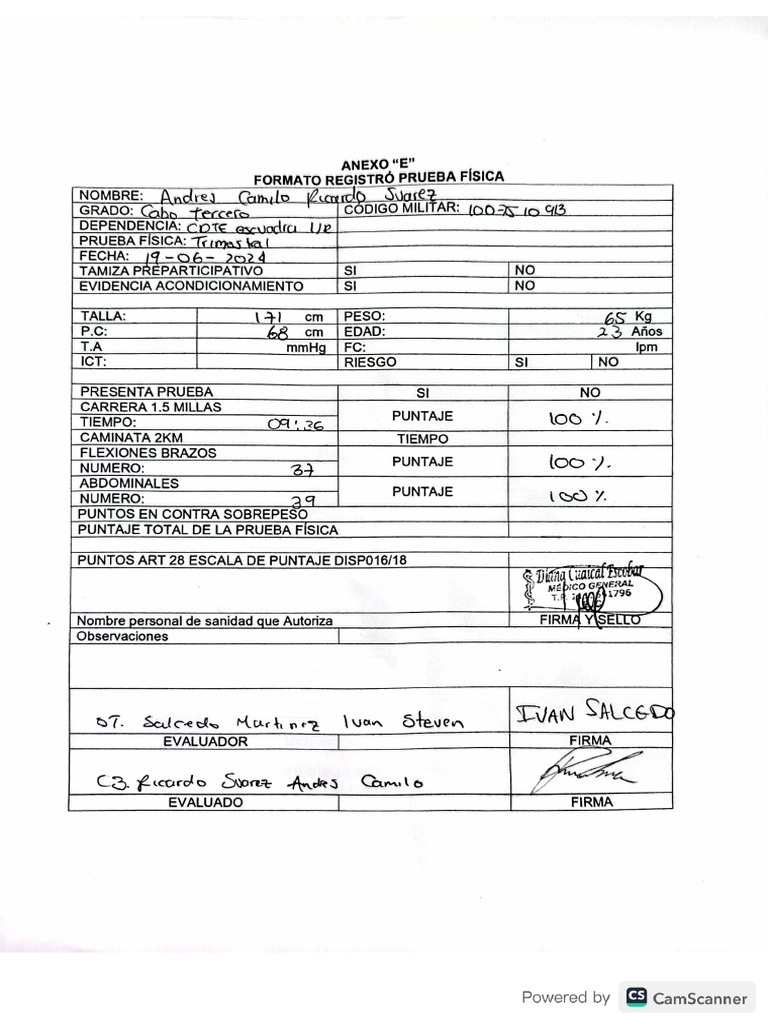 ANEXO "E"
FORMATO REGISTRÓ PRUEBA FÍSICA
NOMBRE: Andres Camilo Ricardo Suarez
GRADO: Cabo tercero CÓDIGO MILITAR: 1007510913
DEPENDENCIA: CDTE escuadra
PRUEBA FÍSICA: Trimestral
FECHA: 19-06-2024
TAMIZA PREPARTICIPATIVO SI NO
EVIDENCIA ACONDICIONAMIENTO SI NO
TALLA: 171 cm PESO: 65 Kg
P.C: 68 cm EDAD: 23 Años
T.A mmHg FC: lpm
ICT: RIESGO SI NO
PRESENTA PRUEBA SI NO
CARRERA 1.5 MILLAS
TIEMPO: 09:36 PUNTAJE 100 %.
CAMINATA 2KM TIEMPO
FLEXIONES BRAZOS
NUMERO: 37 PUNTAJE 100 %.
ABDOMINALES
NUMERO: 39 PUNTAJE 100 %
PUNTOS EN CONTRA SOBREPESO
PUNTAJE TOTAL DE LA PRUEBA FÍSICA
PUNTOS ART 28 ESCALA DE PUNTAJE DISP016/18
Diana Cuaical Escobar
MÉDICO GENERAL
Nombre personal de sanidad que Autoriza FIRMA Y SELLO
Observaciones
DT. Salcedo Martinez Ivan Steven IVAN SALCEDO
EVALUADOR FIRMA
C3. Ricardo Suarez Andres Camilo
EVALUADO FIRMA
Powered by CS CamScanner